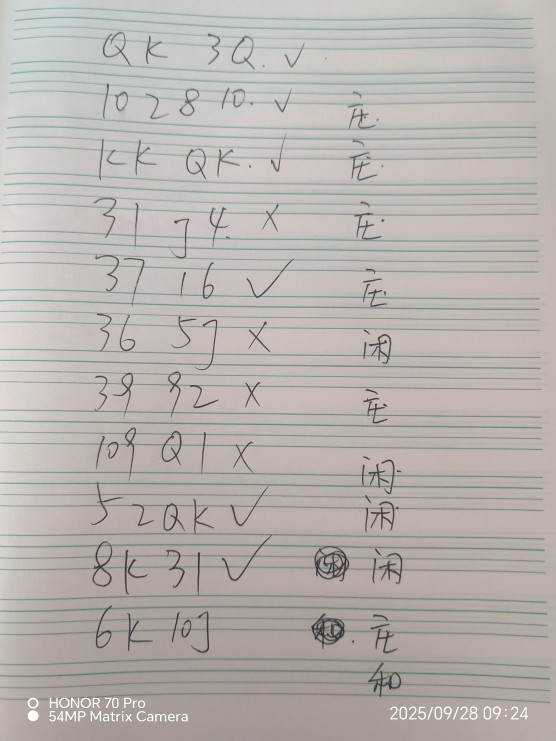 QK 3Q. ✓
10 2 8 10. ✓ 庄.
KK QK. ✓ 庄.
31 J4. × 庄.
37 16 ✓ 庄
36 5J × 闲
39 92 × 庄
109 Q1 × 闲.
52QK ✓ 闲
8K 31 ✓ 闲
6K 10J . 庄
和
HONOR 70 Pro
54MP Matrix Camera
2025/09/28 09:24